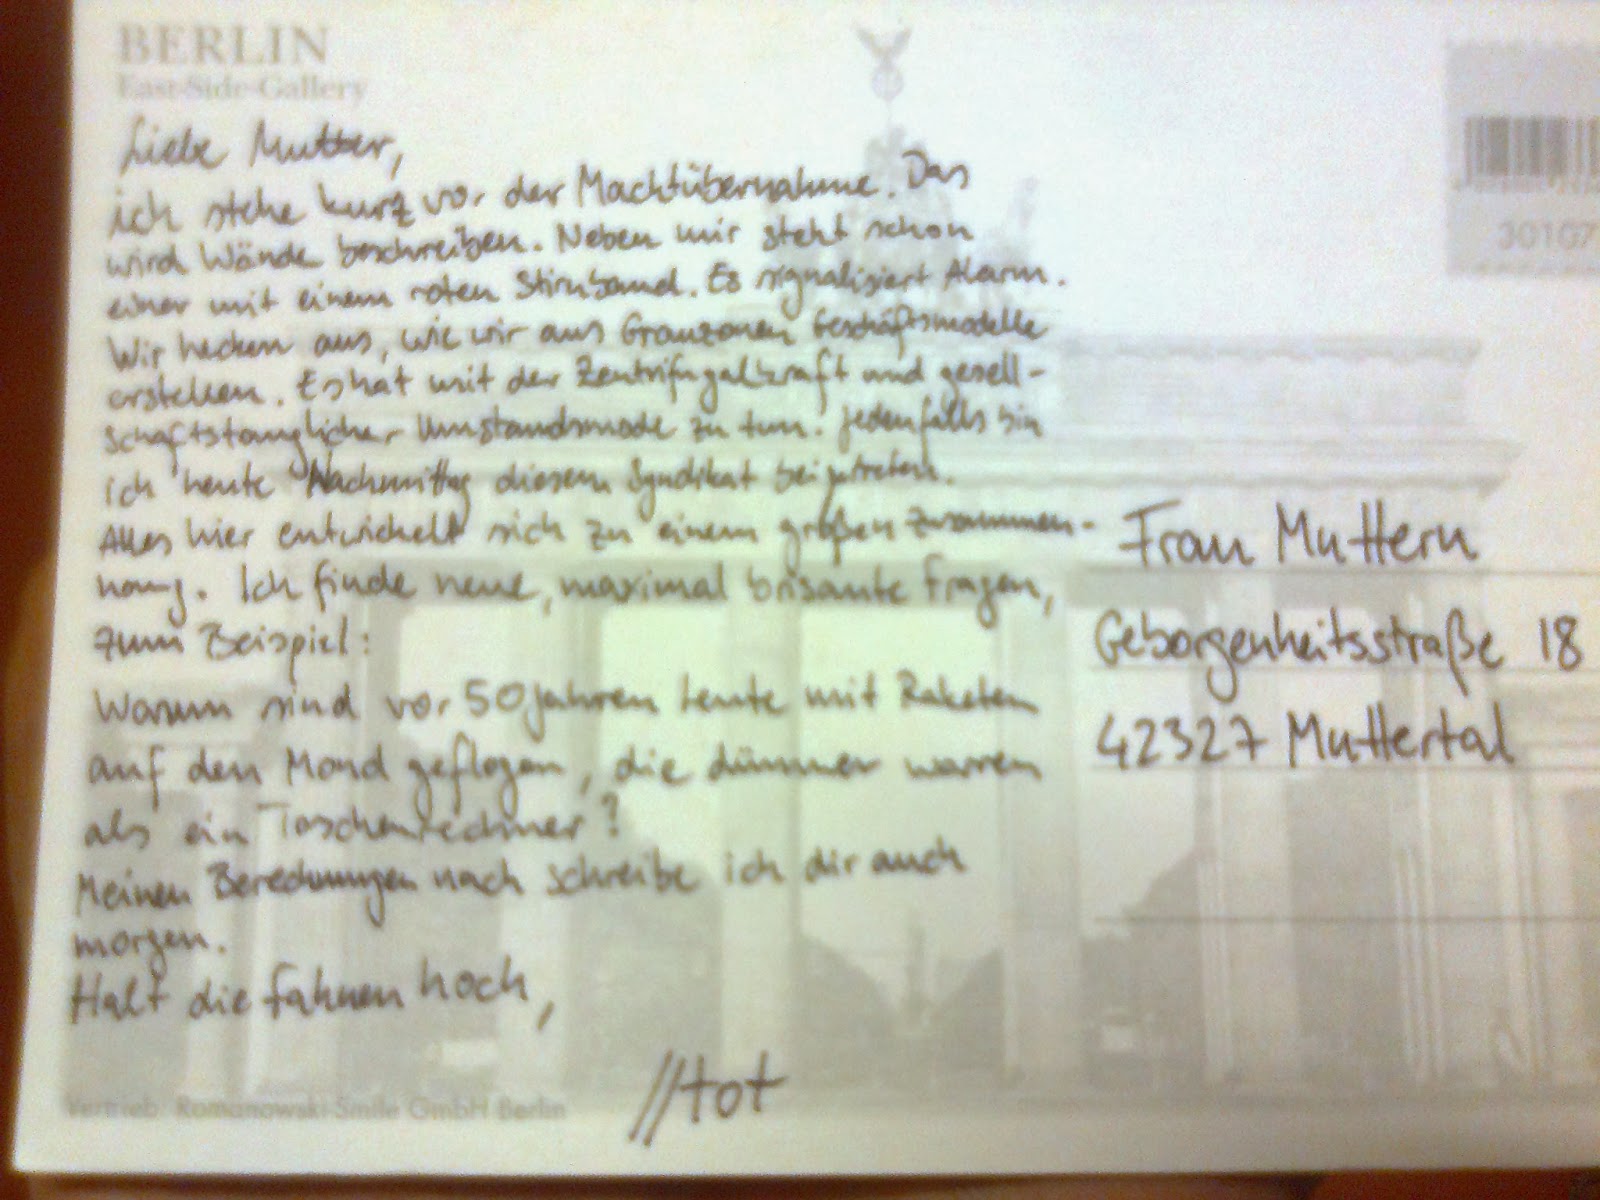 BERLIN
East-Side-Gallery
Liebe Mutter,
ich stehe kurz vor der Machtübernahme. Das
wird Wände beschreiben. Neben mir steht schon
einer mit einem roten Stirnband. Es signalisiert Alarm.
Wir hecken aus, wie wir aus Grauzonen Geschäftsmodelle
erstellen. Es hat mit der Zentrifugalkraft und gesell-
schaftstauglicher Umstandsmode zu tun. Jedenfalls bin
ich heute Nachmittag diesem Syndikat beigetreten.
Alles hier entwickelt sich zu einem großen Zusammen-
hang. Ich finde neue, maximal brisante Fragen,
zum Beispiel:
Warum sind vor 50 Jahren Leute mit Raketen
auf den Mond geflogen, die dümmer waren
als ein Taschenrechner?
Meinen Berechnungen nach schreibe ich dir auch
morgen.
Halt die Fahnen hoch,
//tot
Frau Muttern
Geborgenheitsstraße 18
42327 Muttertal
30107
Vertrieb: Romanowski-Smile GmbH Berlin